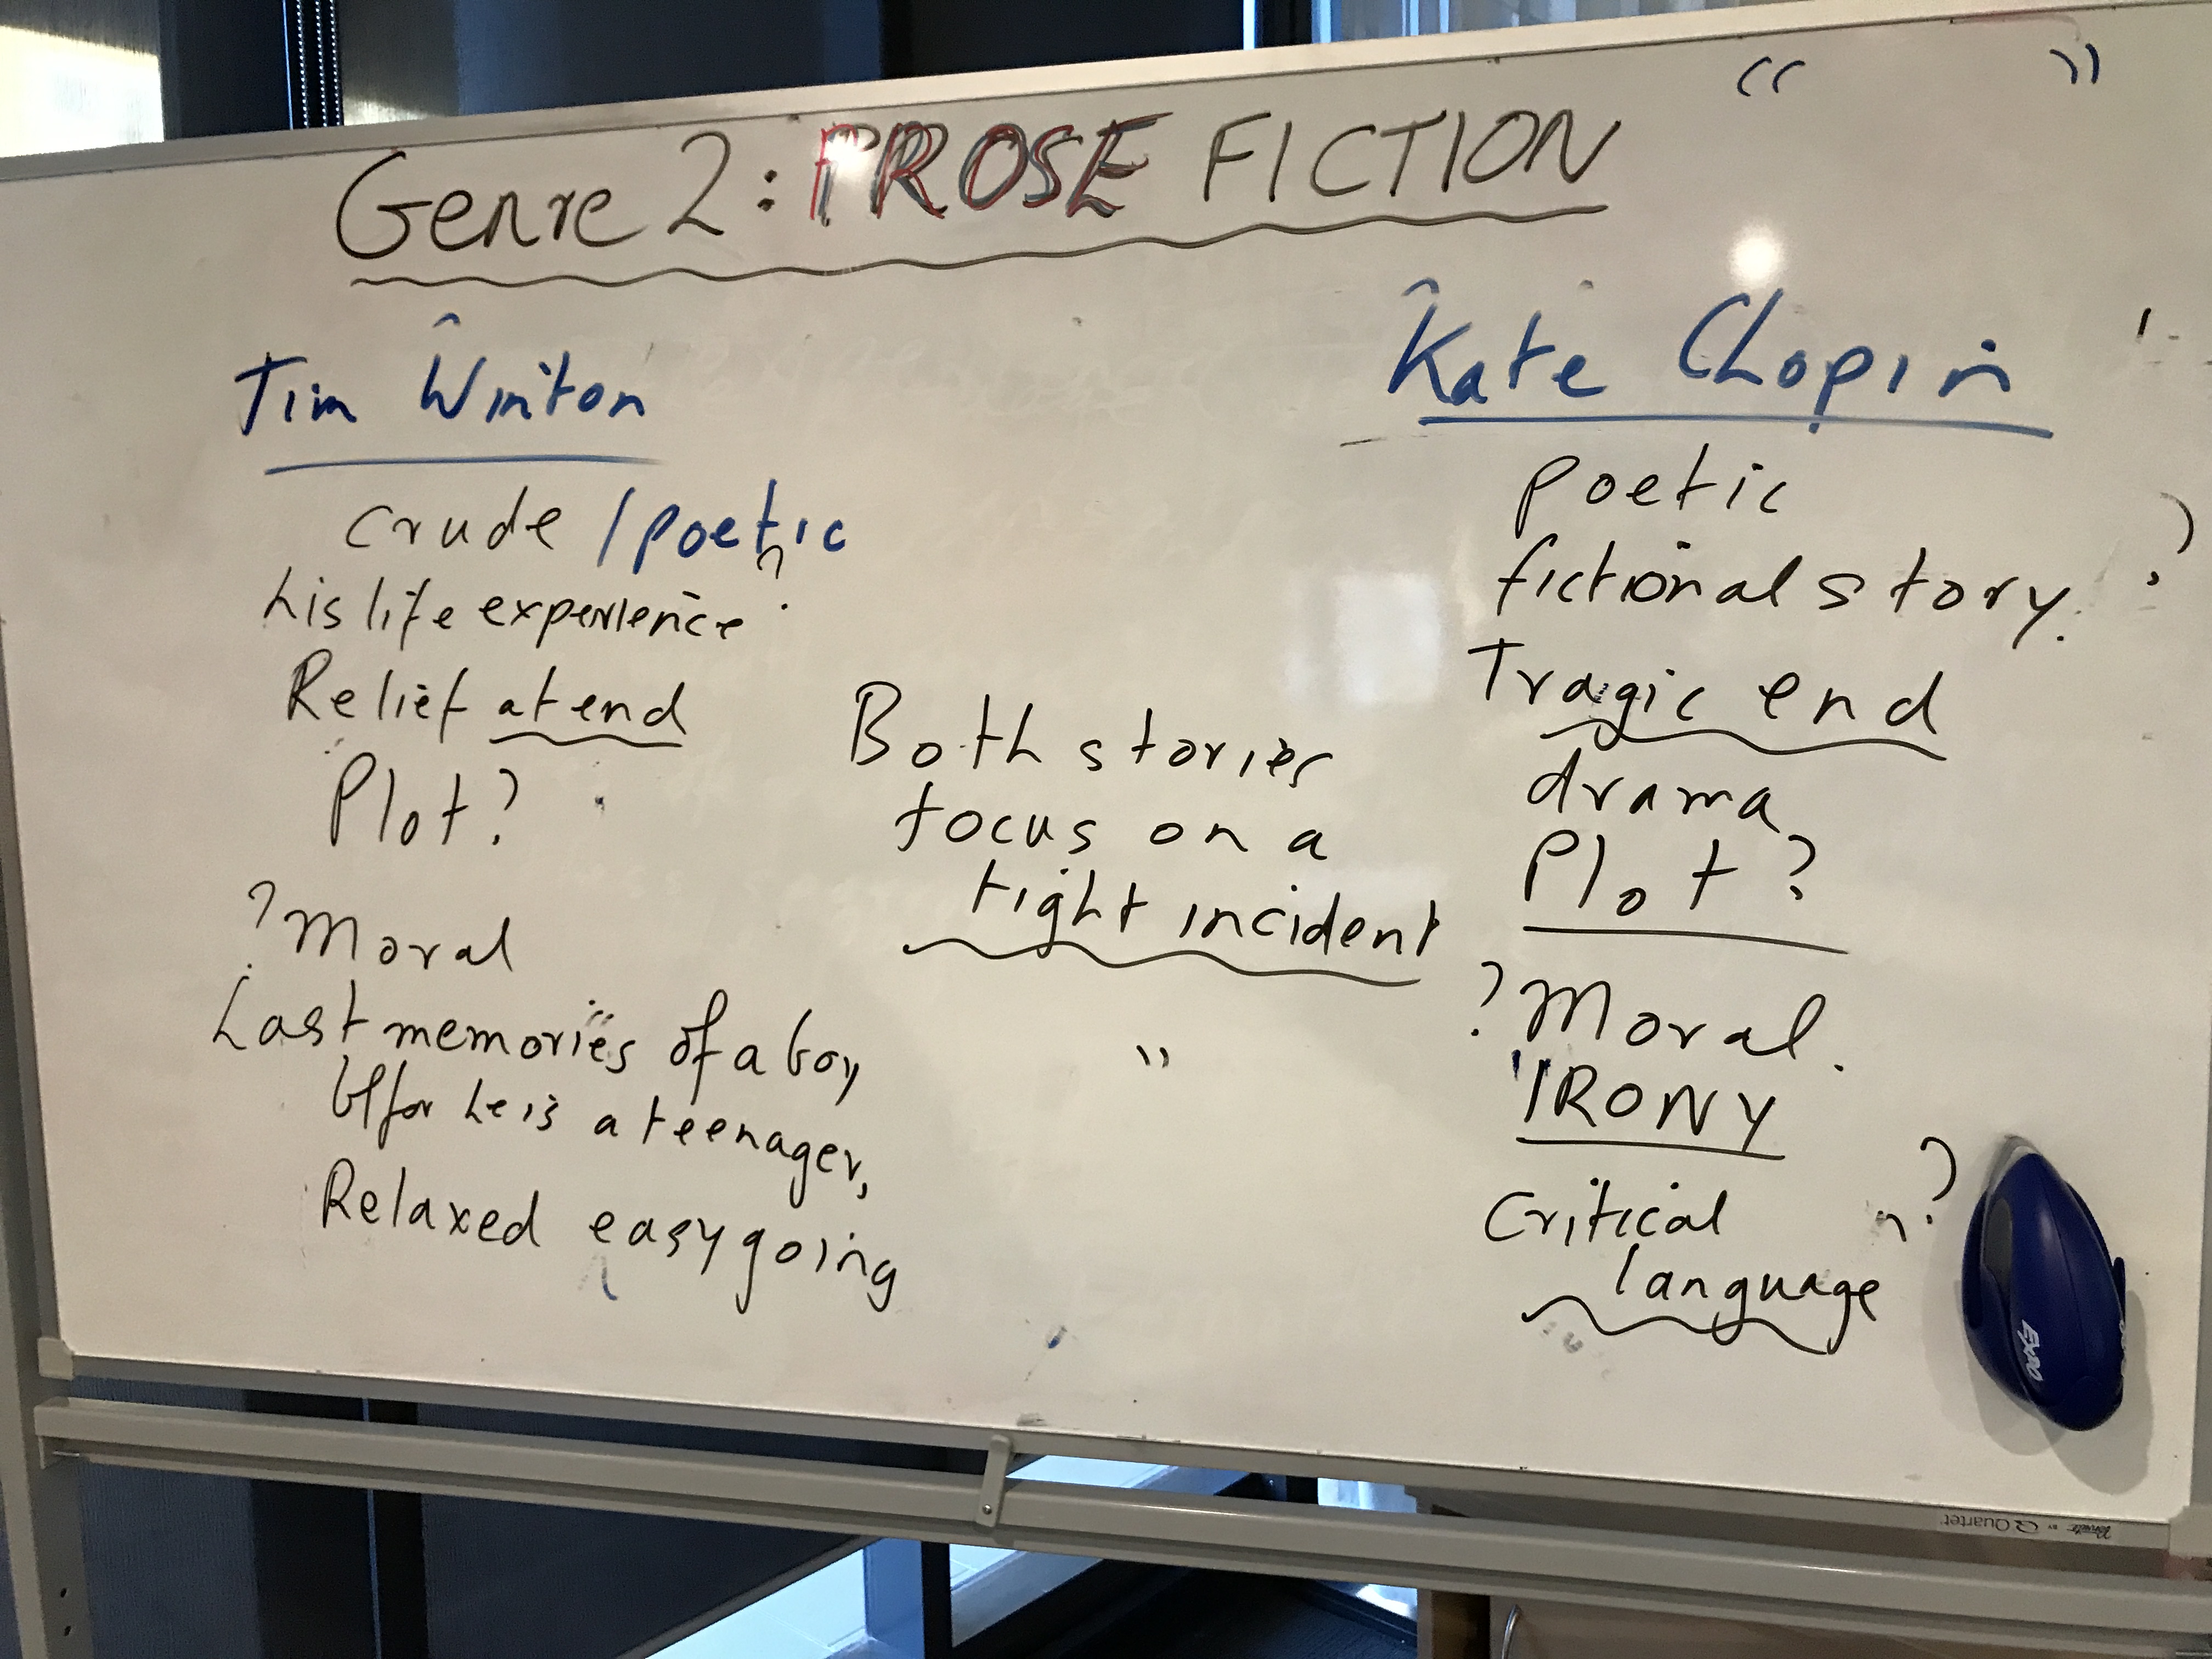 “ ”
Genre 2: PROSE FICTION
Tim Winton
crude / poetic
his life experience?
Relief at end
Plot?
? Moral
Last memories of a boy
he is a teenager,
Relaxed easygoing
Both stories
focus on a
tight incident
"
Kate Chopin
poetic
fictional story. ?
Tragic end
drama
Plot?
? Moral.
"IRONY
Critical ?
language
EXPO
Quartet